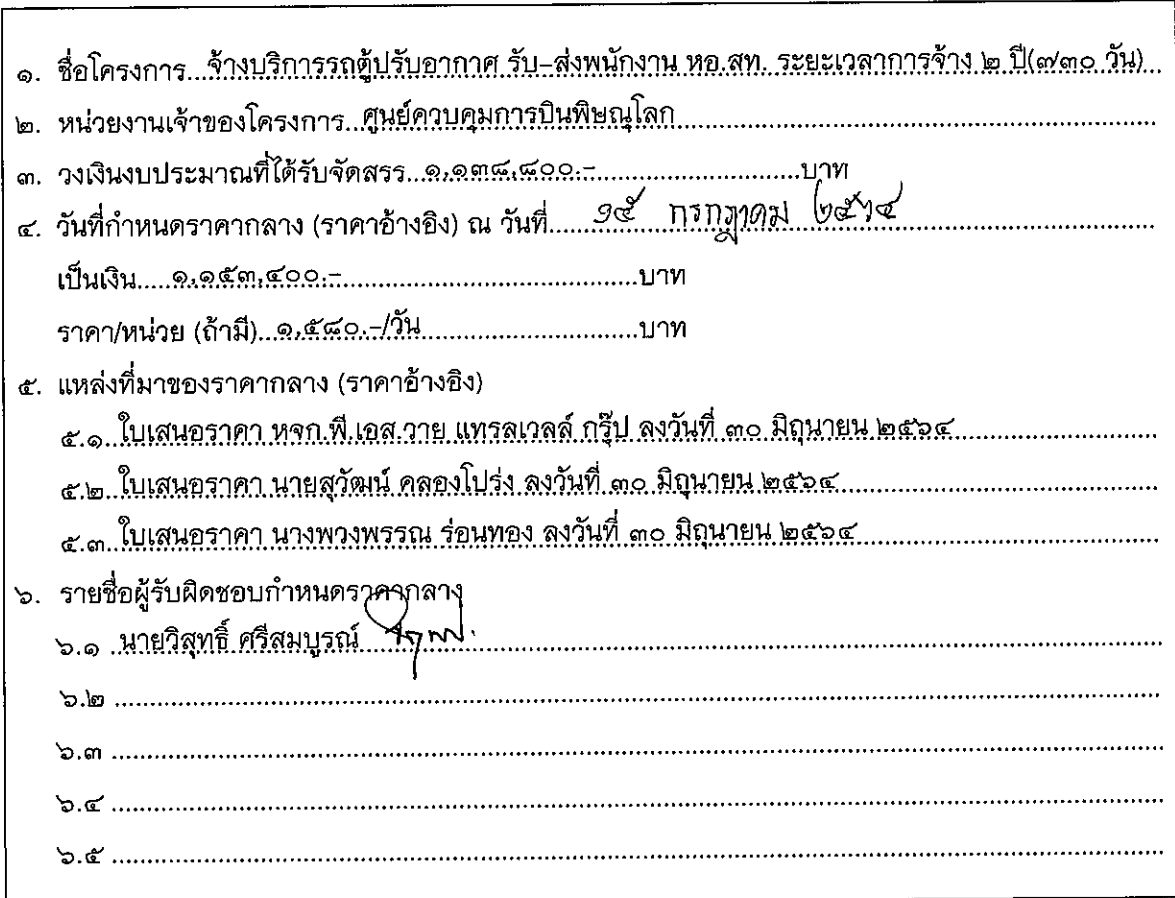 ๑. ชื่อโครงการ...จ้างบริการรถตู้ปรับอากาศ รับ-ส่งพนักงาน หอ.สท. ระยะเวลาการจ้าง ๒ ปี(๗๓๐ วัน)...
๒. หน่วยงานเจ้าของโครงการ...ศูนย์ควบคุมการบินพิษณุโลก...
๓. วงเงินงบประมาณที่ได้รับจัดสรร...๑,๑๓๘,๘๐๐.-...บาท
๔. วันที่กำหนดราคากลาง (ราคาอ้างอิง) ณ วันที่...๑๕ กรกฎาคม ๒๕๖๔...
เป็นเงิน.....๑,๑๕๓,๔๐๐.-...บาท
ราคา/หน่วย (ถ้ามี)...๑,๕๘๐.-/วัน...บาท
๕. แหล่งที่มาของราคากลาง (ราคาอ้างอิง)
๕.๑..ใบเสนอราคา หจก.พี.เอส.วาย แทรลเวลล์ กรุ๊ป ลงวันที่ ๓๐ มิถุนายน ๒๕๖๔...
๕.๒..ใบเสนอราคา นายสุวัฒน์ คลองโปร่ง ลงวันที่ ๓๐ มิถุนายน ๒๕๖๔...
๕.๓..ใบเสนอราคา นางพวงพรรณ ร่อนทอง ลงวันที่ ๓๐ มิถุนายน ๒๕๖๔...
๖. รายชื่อผู้รับผิดชอบกำหนดราคากลาง
๖.๑ ..นายวิสุทธิ์ ศรีสมบูรณ์...
๖.๒ ...
๖.๓ ...
๖.๔ ...
๖.๕ ...